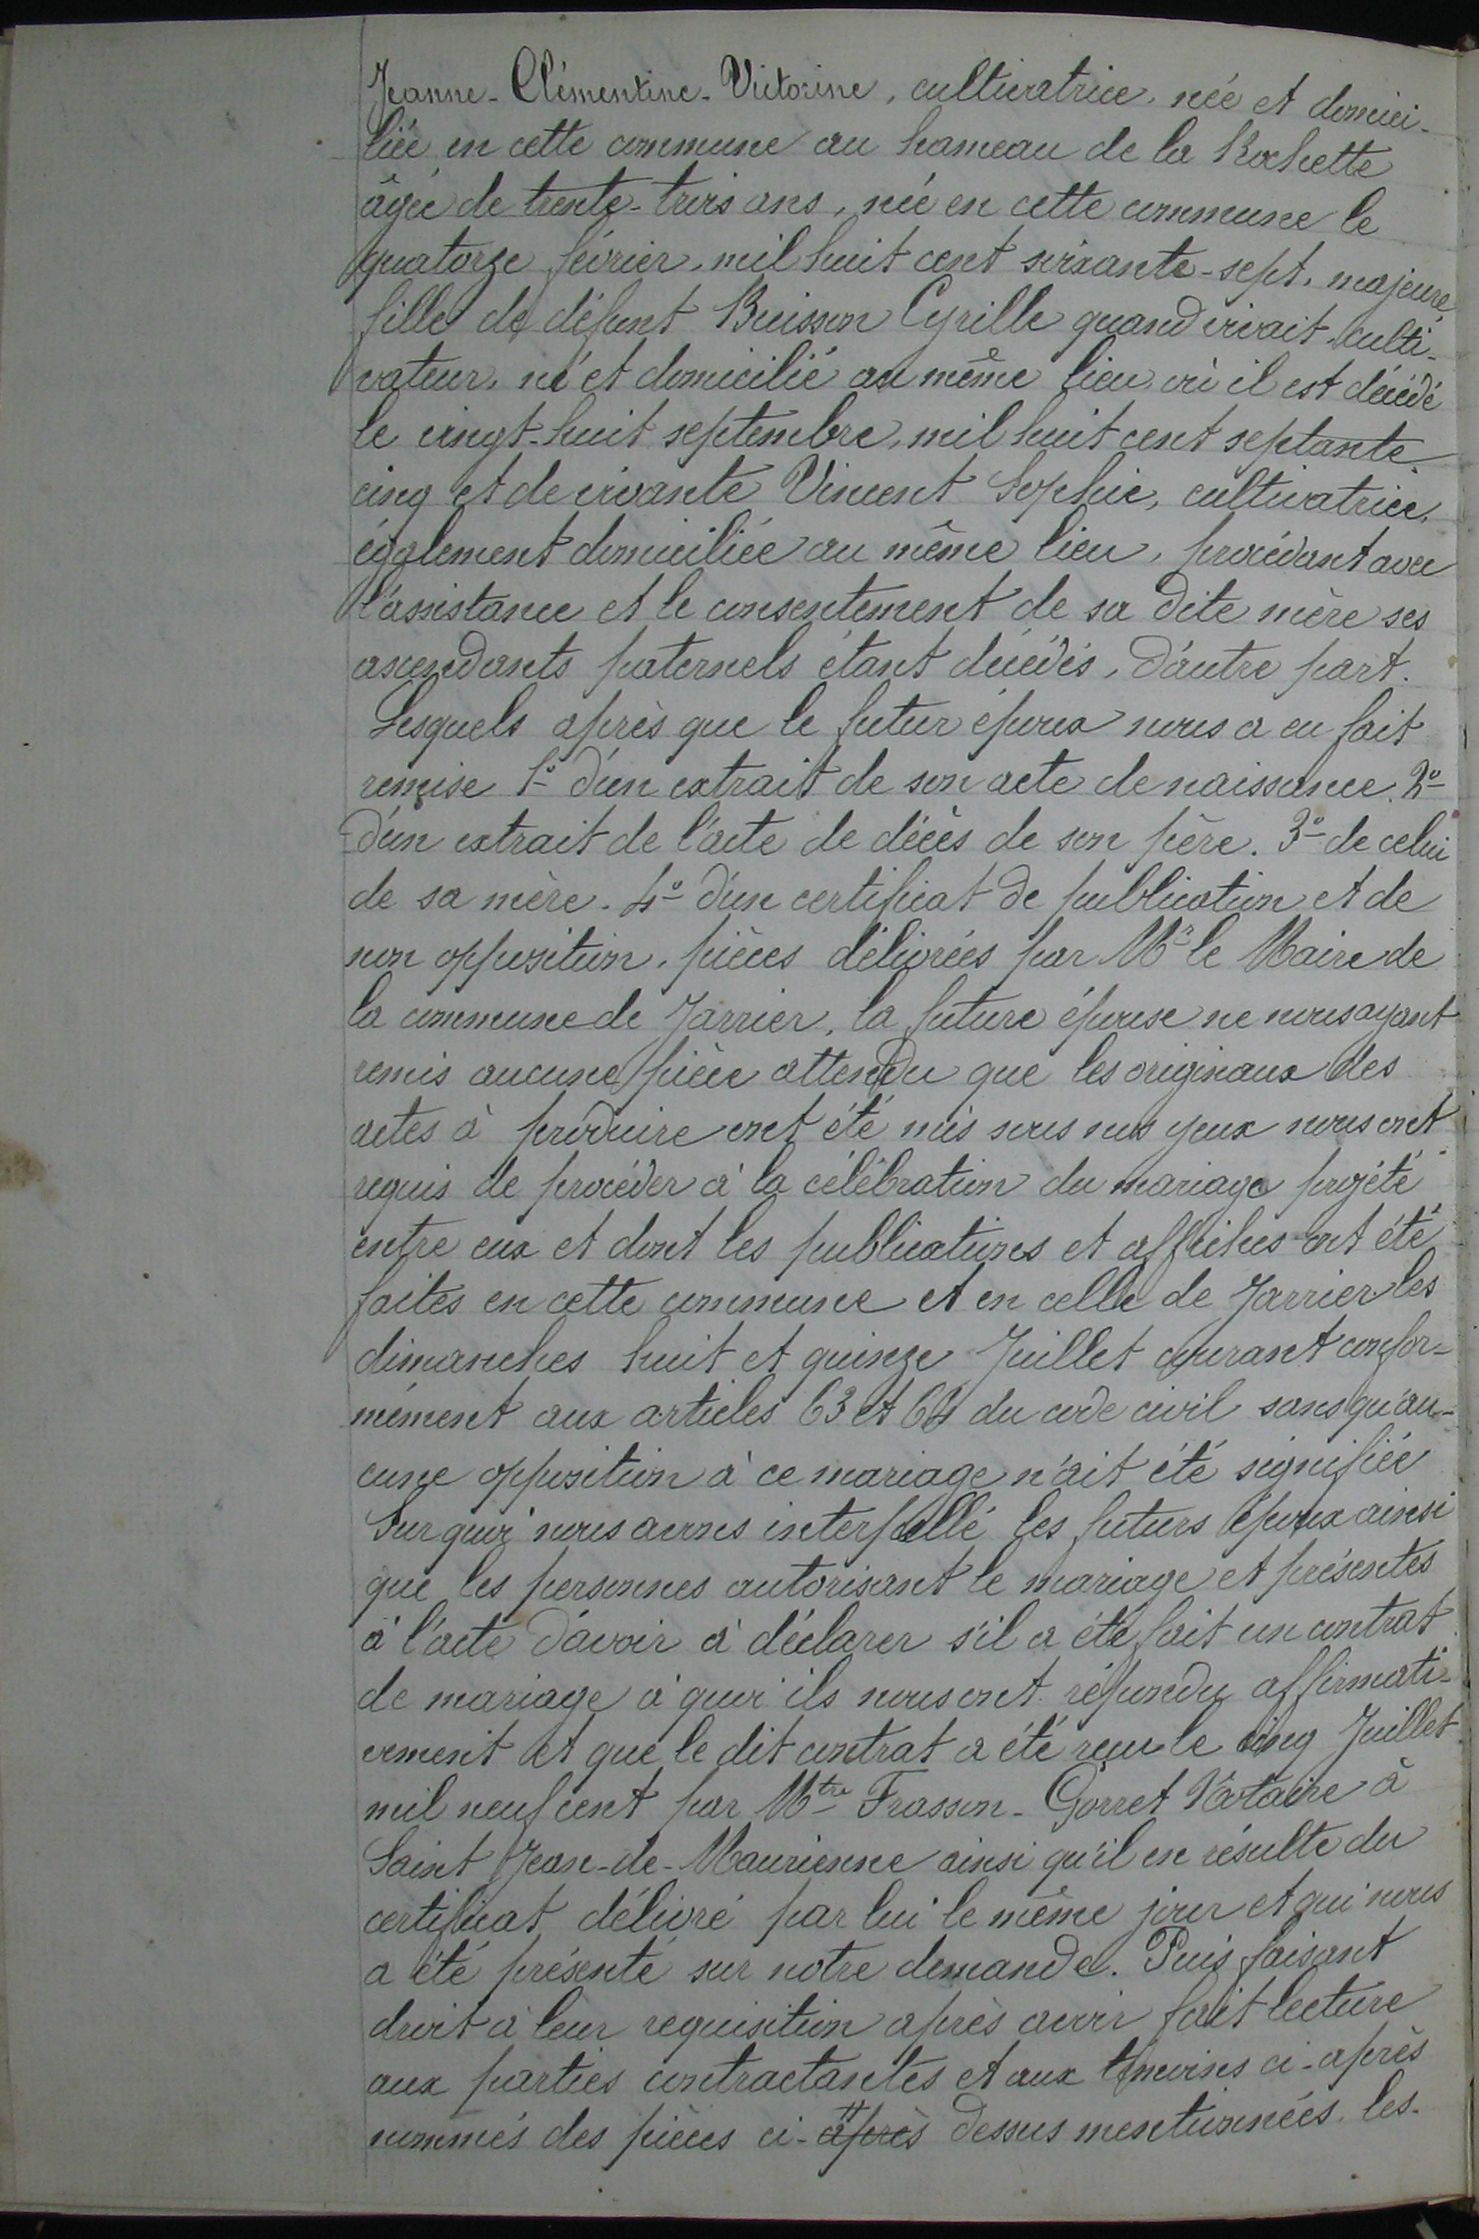 Jeanne-Clémentine-Victorine, cultivatrice, née et domici-
liée en cette commune au hameau de la Rochette
âgée de trente-trois ans, née en cette commune le
quatorze février, mil huit cent soixante-sept, majeure,
fille de défunt Buisson Cyrille quand vivait culti-
vateur, né et domicilié au même lieu où il est décédé
le vingt-huit septembre, mil huit cent septante
cinq et de vivante Vincent Sophie, cultivatrice,
également domiciliée au même lieu, procédant avec
l'assistance et le consentement de sa dite mère ses
ascendants paternels étant décédés, d'autre part.
Lesquels après que le futur époux nous a eu fait
remise 1º d'un extrait de son acte de naissance. 2º
d'un extrait de l'acte de décès de son père. 3º de celui
de sa mère. 4º d'un certificat de publication et de
non opposition, pièces délivrées par Mr le Maire de
la commune de Jarrier, la future épouse ne nous ayant
remis aucune pièce attendu que les originaux des
actes à produire ont été mis sous nos yeux nous ont
requis de procéder à la célébration du mariage projété
entre eux et dont les publications et affiches ont été
faites en cette commune et en celle de Jarrier les
dimanches huit et quinze Juillet courant confor=
mément aux articles 63 et 64 du code civil sans qu'au-
cune opposition à ce mariage n'ait été signifiée
Sur quoi nous avons interpellé les futurs époux ainsi
que les personnes autorisant le mariage et présentes
à l'acte d'avoir à déclarer s'il a été fait un contrat
de mariage à quoi ils nous ont répondu affirmati-
vement et que le dit contrat a été reçu le cinq Juillet
mil neuf cent par Mtre Frasson-Gorret Notaire à
Saint Jean-de-Maurienne ainsi qu'il en résulte du
certificat délivré par lui le même jour et qui nous
a été présenté sur notre demande. Puis faisant
droit à leur requisition après avoir fait lecture
aux parties contractantes et aux témoins ci-après
nommés des pièces ci-après dessus mentionnées les